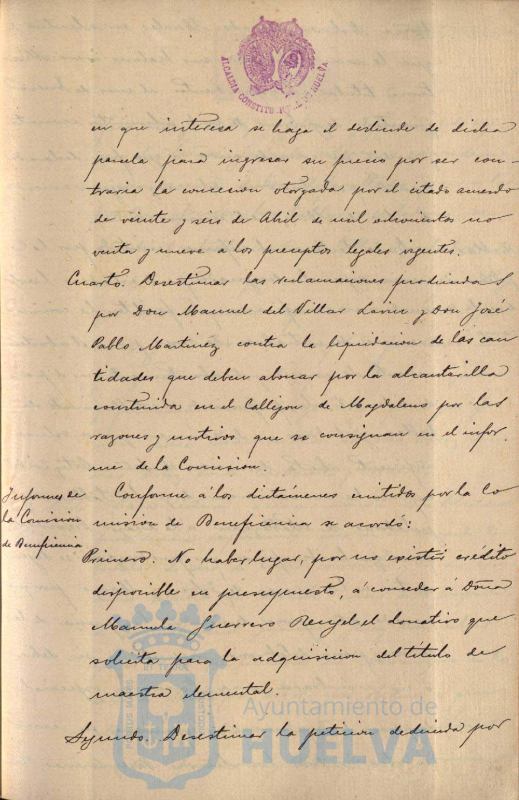 ALCALDIA CONSTITUCIONAL DE HUELVA
en que interesa se haga el deslinde de dicha
parcela para ingresar su precio por ser con-
traria la concesion otorgada por el citado acuerdo
de veinte y seis de Abril de mil ochocientos no
venta y nueve á los preceptos legales vigentes.
Cuarto. Desestimar las reclamaciones producidas
por Don Manuel del Villar Lavin y Don José
Pablo Martinez contra la liquidacion de las can
tidades que deben abonar por la alcantarilla
construida en el Callejon de Magdalena por las
razones y motivos que se consignan en el infor
me de la Comision.
Informes de
la Comision
de Beneficencia
Conforme á los dictámenes emitidos por la Co
mision de Beneficencia se acordó:
Primero. No haber lugar, por no existir crédito
disponible en presupuesto, á conceder á Doña
Manuela Guerrero Rengel el donativo que
solicita para la adquisicion del título de
maestra elemental.
Segundo. Desestimar la peticion deducida por
Ayuntamiento de
HUELVA